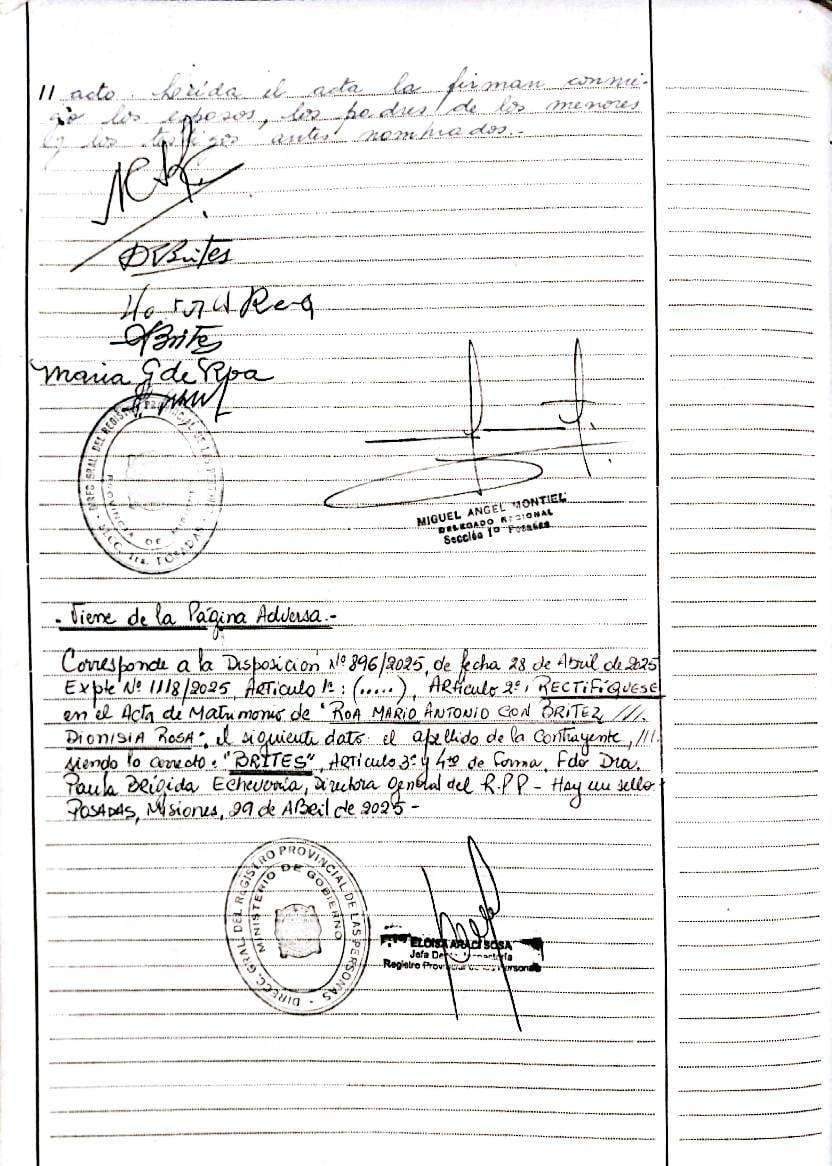 // acto. Leída el acta la firman conmi-
go los esposos, los padres de los menores
y los testigos antes nombrados.-
D Brites
Roa
Brites
Maria G de Roa
MIGUEL ANGEL MONTIEL
DELEGADO REGIONAL
Sección 1ª Posadas
- Viene de la Página Adversa.-
Corresponde a la Disposición Nº 896/2025, de fecha 28 de Abril de 2025
Expte Nº 1118/2025, Artículo 1º: (.....), Artículo 2º: RECTIFÍQUESE
en el Acta de Matrimonio de "ROA MARIO ANTONIO CON BRITEZ, ///.
DIONISIA ROSA", el siguiente dato: el apellido de la Contrayente, ///.
siendo lo correcto: "BRITES", Artículo 3º y 4º de Forma. Fdo Dra.
Paula Brígida Echeverría, Directora General del R.P.P - Hay un sello.
POSADAS, Misiones, 29 de ABril de 2025 -
DIRECC GRAL DEL REGISTRO PROVINCIAL DE LAS PERSONAS
MINISTERIO DE GOBIERNO
ELOISA ARACI SOSA
Jefa
Registro